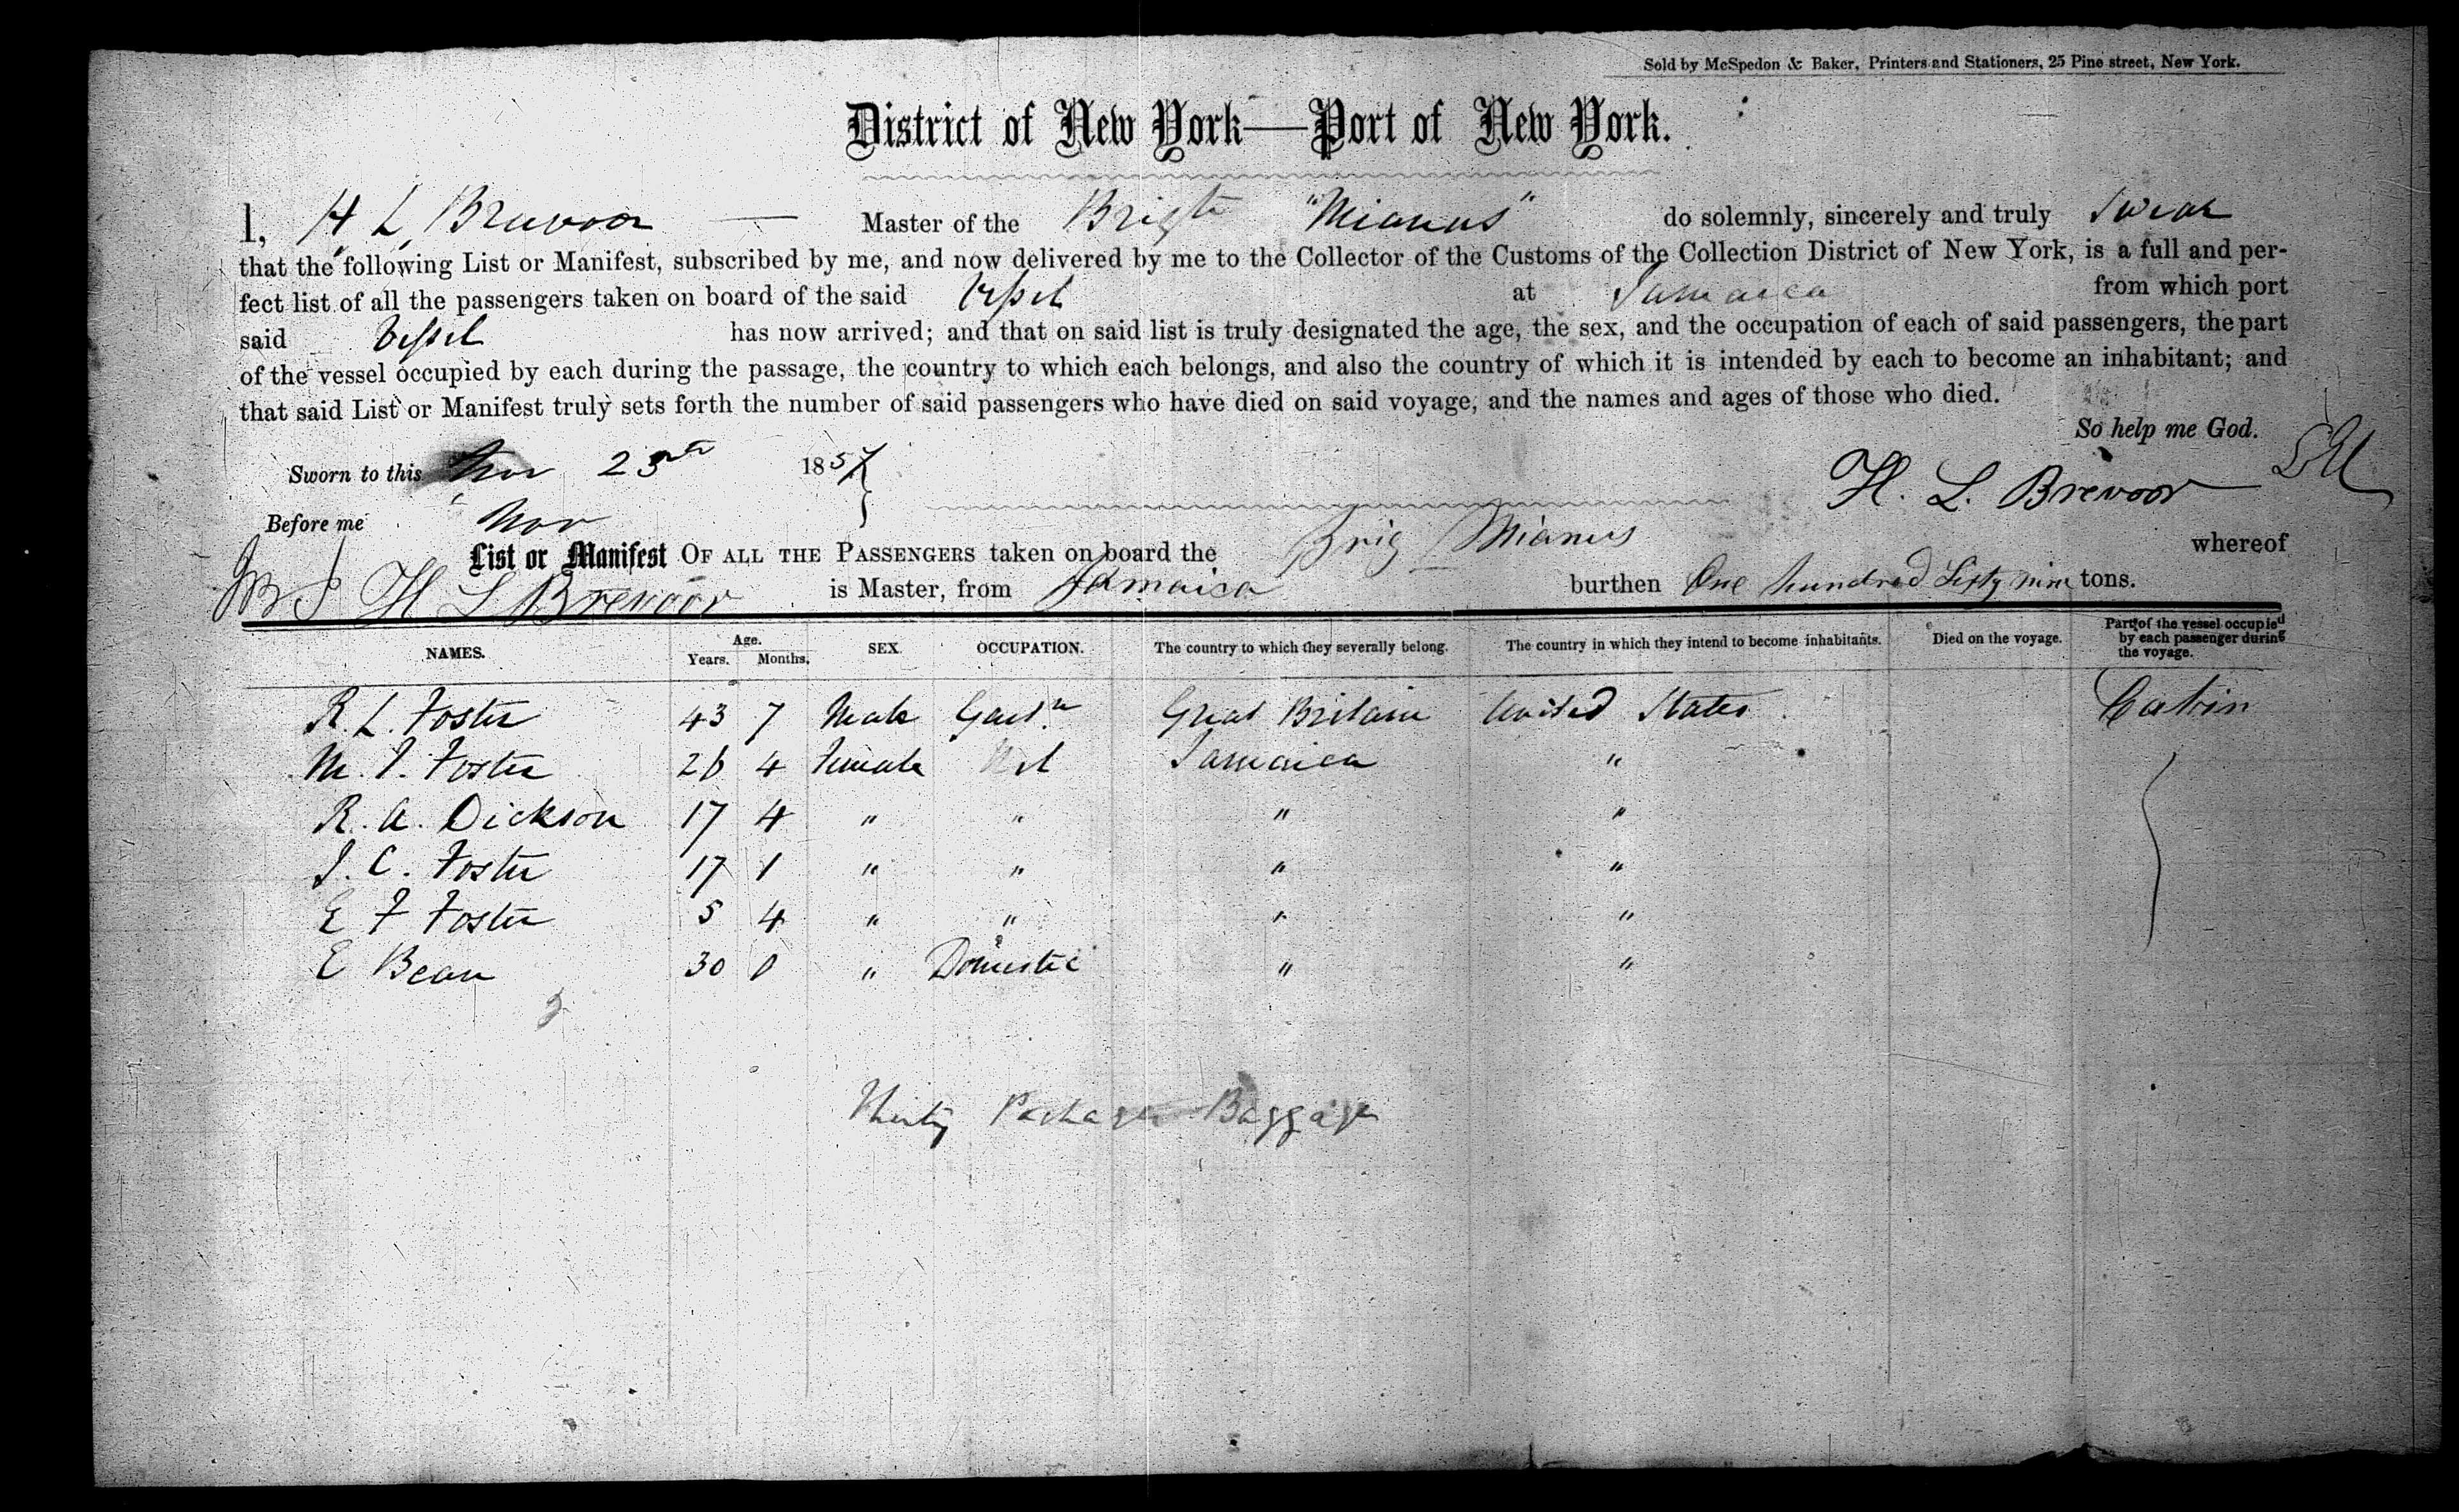 Sold by McSpedon & Baker, Printers and Stationers, 25 Pine street, New York.
District of New York—Port of New York.
I, H L Brevoor — Master of the Brigt "Mianus" do solemnly, sincerely and truly swear
that the following List or Manifest, subscribed by me, and now delivered by me to the Collector of the Customs of the Collection District of New York, is a full and per-
fect list of all the passengers taken on board of the said Vessel at Jamaica from which port
said Vessel has now arrived; and that on said list is truly designated the age, the sex, and the occupation of each of said passengers, the part
of the vessel occupied by each during the passage, the country to which each belongs, and also the country of which it is intended by each to become an inhabitant; and
that said List or Manifest truly sets forth the number of said passengers who have died on said voyage, and the names and ages of those who died.
So help me God.
Sworn to this Nov 23rd 1857
H. L. Brevoor
Before me Nov
List or Manifest OF ALL THE PASSENGERS taken on board the Brig Mianus whereof
H L Brevoor is Master, from Jamaica burthen One hundred Sixty nine tons.
NAMES. Age. Years. Months. SEX. OCCUPATION. The country to which they severally belong. The country in which they intend to become inhabitants. Died on the voyage. Part of the vessel occupied by each passenger during the voyage.
R. L. Foster 43 7 Male Great Britain United States Cabin
M. J. Foster 26 4 Female Jamaica "
R. A. Dickson 17 4 " " " "
J. C. Foster 17 1 " " " "
E F Foster 5 4 " " " "
E Bean 30 0 " Domestic " "
Thirty Packages Baggage